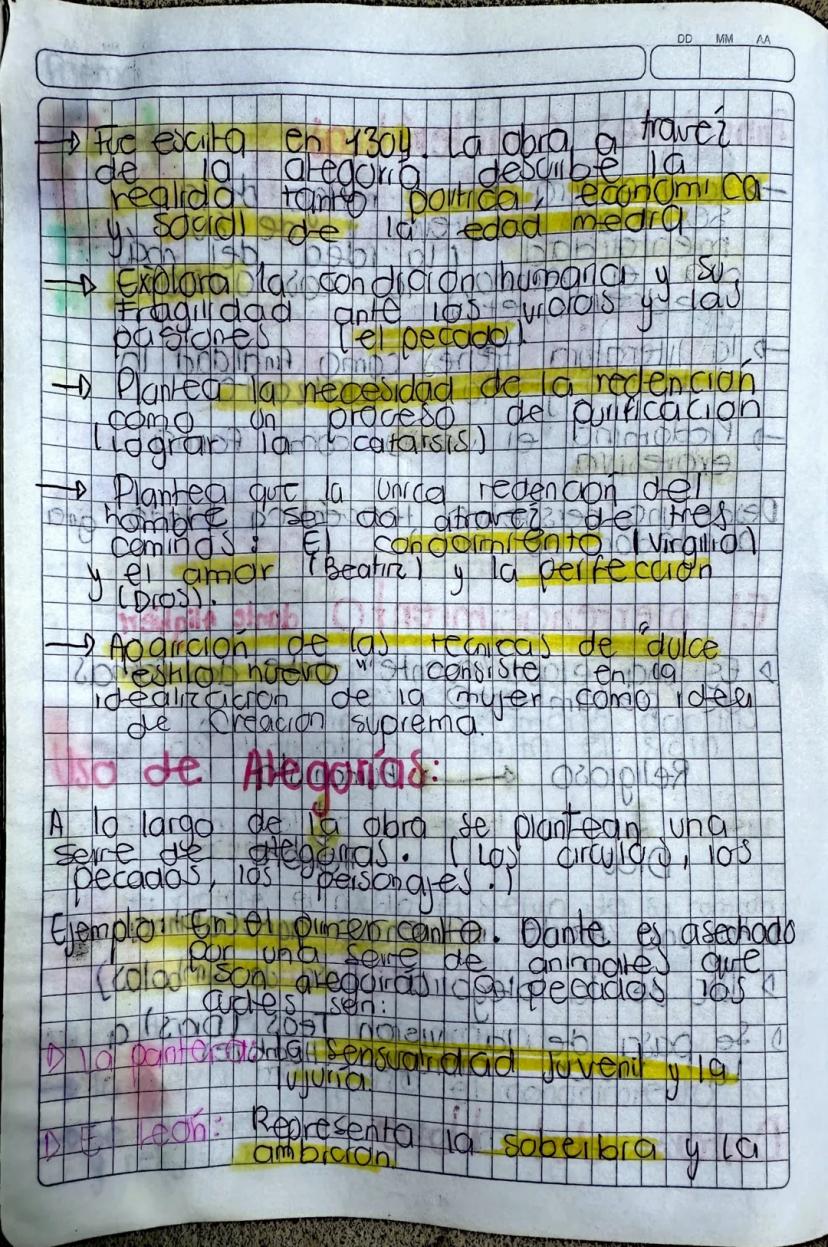 DD MM AA
→ Fue escrita en 1304. La obra a travez
de la alegoría describe la
realida tanto politica, economica
y social de la edad media
→ Explora la condicion humana y su
Fragilidad ante los vicios y las
pasiones (el pecado)
→ Plantea la necesidad de la redención
como un proceso de purificacion
(lograr la catarsis)
→ Plantea que la unica redencion del
hombre se da atravez de tres
caminos: El (Virgilio)
y el amor (Beatriz) y la perfección
(Dios).
→ Aparicion de las tecnicas de "dulce
estilo nuevo" consiste en la
idealización de la mujer como idea
de Creacion suprema.
Uso de Alegorías:
A lo largo de la obra se plantean una
serie de alegorias. (Los circulos, los
pecados, los personajes.)
Ejemplo: En el primer canto. Dante es asechado
por una serie de animales que
son pecados los
cuales son:
▷ La pantera: La sensualidad juvenil y la
lujuria.
▷ El León: Representa la soberbia y la
ambición.